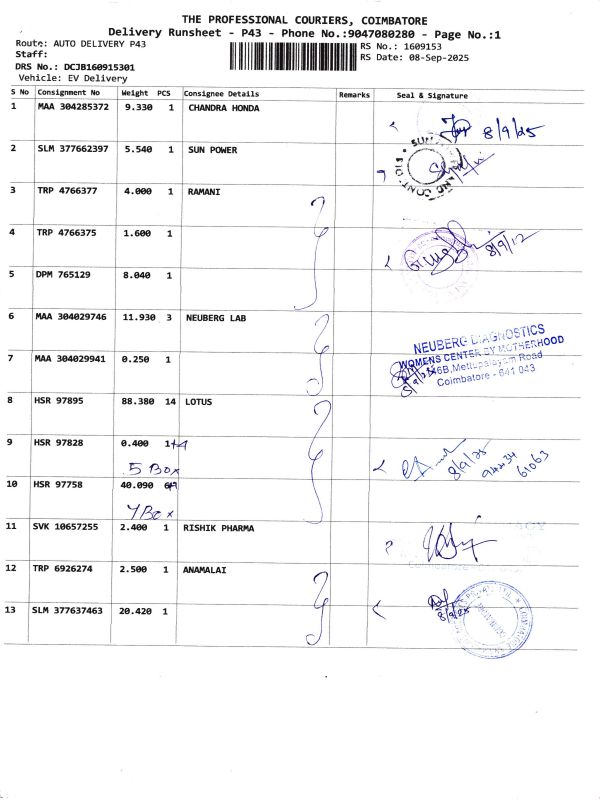 THE PROFESSIONAL COURIERS, COIMBATORE
Delivery Runsheet - P43 - Phone No.:9047080280 - Page No.:1
Route: AUTO DELIVERY P43
RS No.: 1609153
Staff:
RS Date: 08-Sep-2025
DRS No.: DCJB160915301
Vehicle: EV Delivery
S No Consignment No Weight PCS Consignee Details Remarks Seal & Signature
1 MAA 304285372 9.330 1 CHANDRA HONDA
8/9/25
2 SLM 377662397 5.540 1 SUN POWER
3 TRP 4766377 4.000 1 RAMANI
4 TRP 4766375 1.600 1
8/9/12
5 DPM 765129 8.040 1
6 MAA 304029746 11.930 3 NEUBERG LAB
NEUBERG DIAGNOSTICS
WOMENS CENTER BY MOTHERHOOD
146B, Mettupalayam Road
Coimbatore - 641 043
7 MAA 304029941 0.250 1
8 HSR 97895 88.380 14 LOTUS
9 HSR 97828 0.400 1
8/9/25
94434
61063
5 Box
10 HSR 97758 40.090
4 Box
11 SVK 10657255 2.400 1 RISHIK PHARMA
12 TRP 6926274 2.500 1 ANAMALAI
13 SLM 377637463 20.420 1
8/9/25